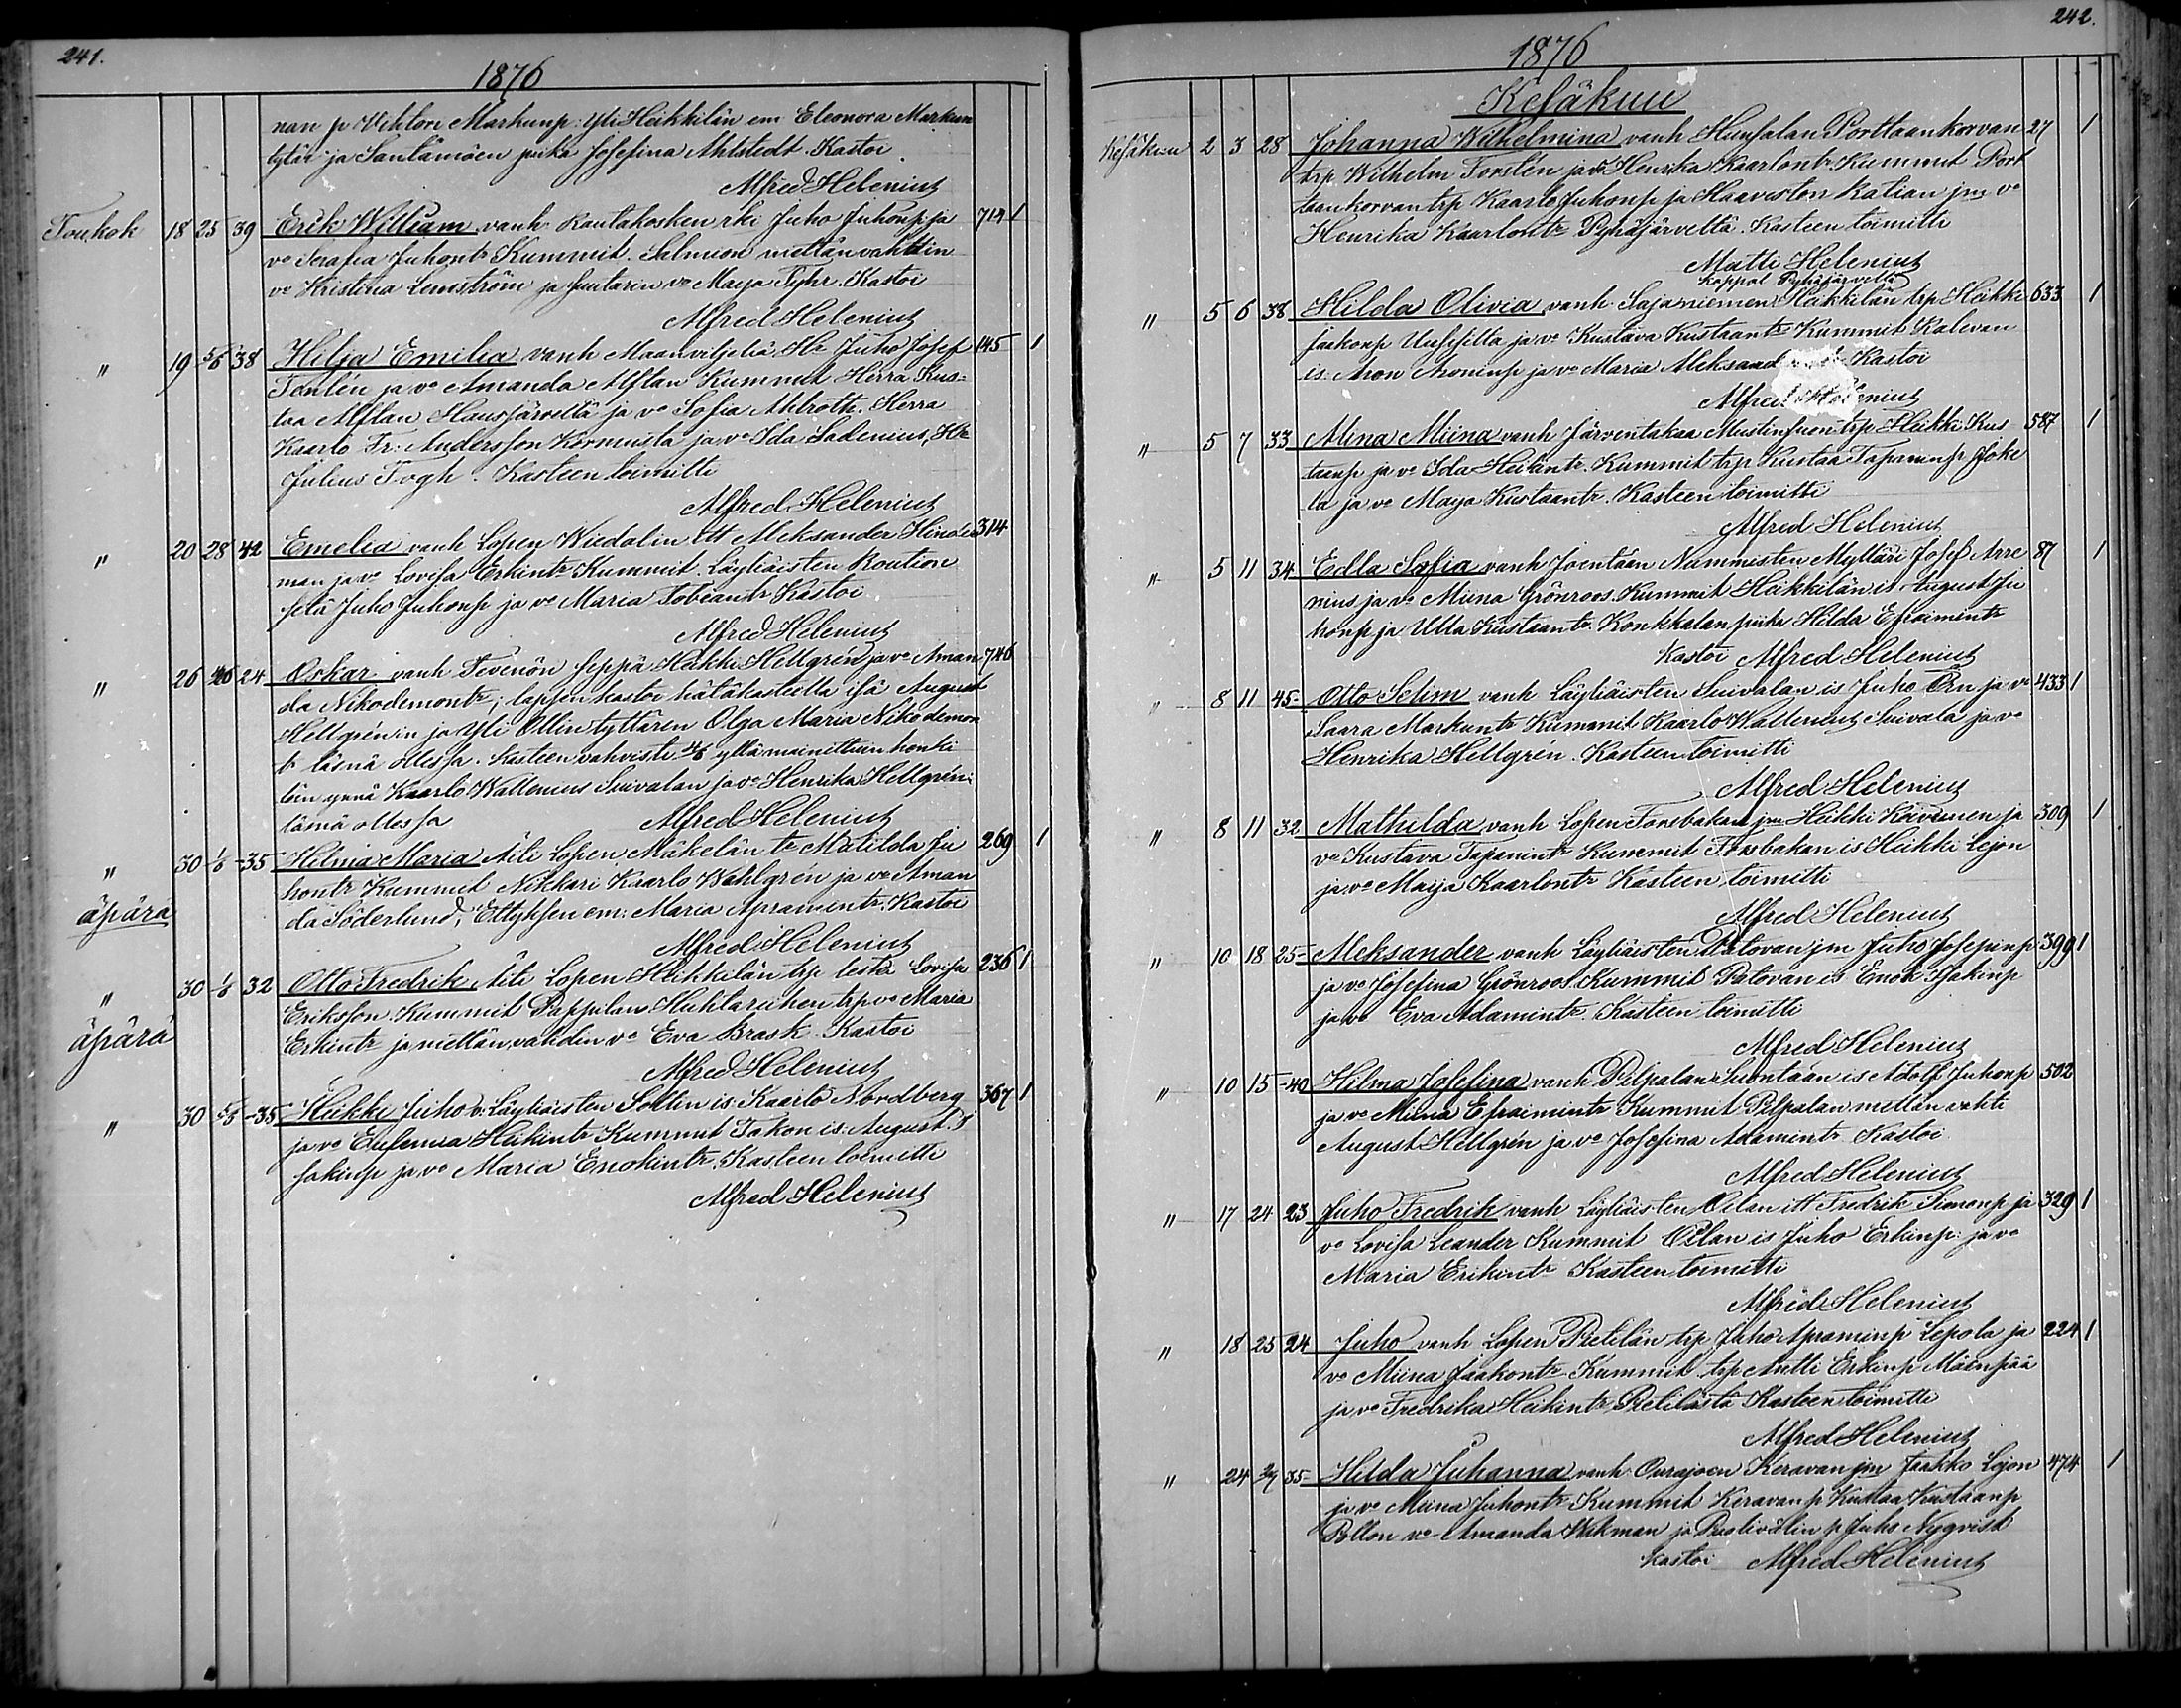 241.
1876
nan p Vihtori Markunp: Yli Heikkilän em Eleonora Markun
tytär ja Santamäen piika Josefina Ahlstedt. Kastoi
Alfred Helenius
Toukok 18 25 39 Erik William vanh. Rautakosken rki Juho Juhonp ja 714 1
vo Serafia Juhontr Kummit. Salmion mettänvahdin
vo Kristina Lemström ja vo Maija Fyhr. Kastoi
Alfred Helenius
" 19 5/6 38 Hilja Emilia vanh Maanviljeliä Hr Juho Josef 145 1
ja vo Amanda Alftan Kummit Herra Kus=
taa Alftan Hausjärveltä ja vo Sofia Ahlroth. Herra
Kaarlo Fr: Andersson Kormusta ja vo Ida Sadenius, Hr
Julius Fogh. Kasteen toimitti
Alfred Helenius
" 20 28 42 Emelia vanh Lopen Wiedalin itt Aleksander Hinda 314
man ja vo Lovisa Erkintr Kummit. Läyliäisten Roution
setä Juho Juhonp ja vo Maria Tobiantr Kastoi
Alfred Helenius
" 26 26 24 Oskar vanh Tevenön seppä Heikki Hellgrén ja vo Aman 746
da Nikodemontr; lapsen kastoi hätäkasteella isä August
Hellgrénin ja Yli Ollin tyttären Olga Maria Nikodemon
tr läsnä ollessa. Kasteen vahvisti yllä mainittuin henki
löin ynnä Kaarlo Wallenius Suivalan ja vo Henrika Hellgrén
läsnä ollessa Alfred Helenius
" 30 1/6 35 Hilma Maria Äiti Lopen Mäkelän tr Matilda Ju 269 1
hontr Kummit Nikkari Kaarlo Wahlgrén ja vo Aman
äpärä da Söderlund, em: Maria Apramintr. Kastoi
Alfred Helenius
" 30 1/6 32 Otto Fredrik Äiti Lopen Heikkilän trp leski Lovisa 236 1
Eriksson. Kummit Pappilan Huhtariihen trp vo Maria
äpärä Erkintr ja mettän vahdin vo Eva Brask. Kastoi
Alfred Helenius
" 30 5/6 35 Heikki Juho v: Läyliäisten Soltin is: Kaarlo Nordberg 367 1
ja vo Eufemia Heikintr Kummit Takon is: August
Isakinp ja vo Maria Enokintr. Kasteen toimitti
Alfred Helenius
242.
1876
Kesäkuu
Kesäkuu 2 3 28 Johanna Wilhelmina vanh Hunsalan Porttaankorvan 27 1
trp Wilhelm Forslén ja vo Henrika Kaarlontr. Kummit Port
taankorvan trp Kaarlo Juhonp ja Haaviston Katian jm vo
Henrika Kaarlontr Pyhäjärveltä. Kasteen toimitti
Matti Helenius
Kappal. Pyhäjärveltä
" 5 6 38 Hilda Olivia vanh. Sajaniemen Heikkilän trp Heikki 633 1
Jaakonp ja vo Kustava Kustaantr Kummit Kalevan
is: Aron Aroninp ja vo Maria Aleksand Kastoi
Alfred Helenius
" 5 7 33 Alina Miina vanh Järventakaa Mustinsuon trp Heikki Kus 587 1
taanp ja vo Ida Heikintr. Kummit trp Kustaa Tapaninp Joke
la ja vo Maija Kustaantr. Kasteen toimitti
Alfred Helenius
" 5 11 34 Edla Sofia vanh Joentaan Nummisten Mylläri Josef Arre 87 1
nius ja vo Miina Grönroos. Kummit Heikkilän is. August Ju
honp ja Ulla Kustaantr. Konkkalan piika Hilda Efraimintr
Kastoi Alfred Helenius
" 8 11 45 Otto Selim vanh Läyliäisten Suivalan is Juho Örn ja vo 433 1
Saara Markuntr Kummit Kaarlo Wallenius Suivala ja vo
Henrika Hellgrén. Kasteen toimitti
Alfred Helenius
" 8 11 32 Mathilda vanh Lopen Forsbakan jm Heikki Koivunen ja 309 1
vo Kustava Tapanintr Kummit Forsbakan is Heikki Lejon
ja vo Maija Kaarlontr Kasteen toimitti
Alfred Helenius
" 10 18 25 Aleksander vanh Läyliäisten Patovan jm Juho Josepinp 399 1
ja vo Josefina Grönroos. Kummit Patovan is Enok Isakinp
ja vo Eva Adamintr Kasteen toimitti
Alfred Helenius
" 10 15 40 Hilma Josefina vanh Pilpalan Suontaan is Adolf Juhonp 502
ja vo Miina Efraimintr Kummit Pilpalan mettän vahti
August Hellgrén ja vo Josefina Adamintr Kastoi
Alfred Helenius
" 17 24 23 Juho Fredrik vanh Läyliäisten Ötlan itt Fredrik Simonp ja 329 1
vo Lovisa Leander Kummit Ötlan is Juho Erkinp: ja vo
Maria Erikintr Kasteen toimitti
Alfred Helenius
" 18 25 24 Juho vanh Lopen Pietilän trp Juho Apraminp Lepola ja 224 1
vo Miina Jaakontr Kummit trp Antti Erkinp Mäenpää
ja vo Fredrika Heikintr Pietilästä Kasteen toimitti
Alfred Helenius
" 24 2/7 35 Hilda Juhanna vanh. Ourajoen Keravan jm Jaakko Lejon 474 1
ja vo Miina Juhontr Kummit Keravan p Kustaa Kustaanp
Pollon vo Amanda Wikman ja p Juho Nyqvist
Kastoi Alfred Helenius